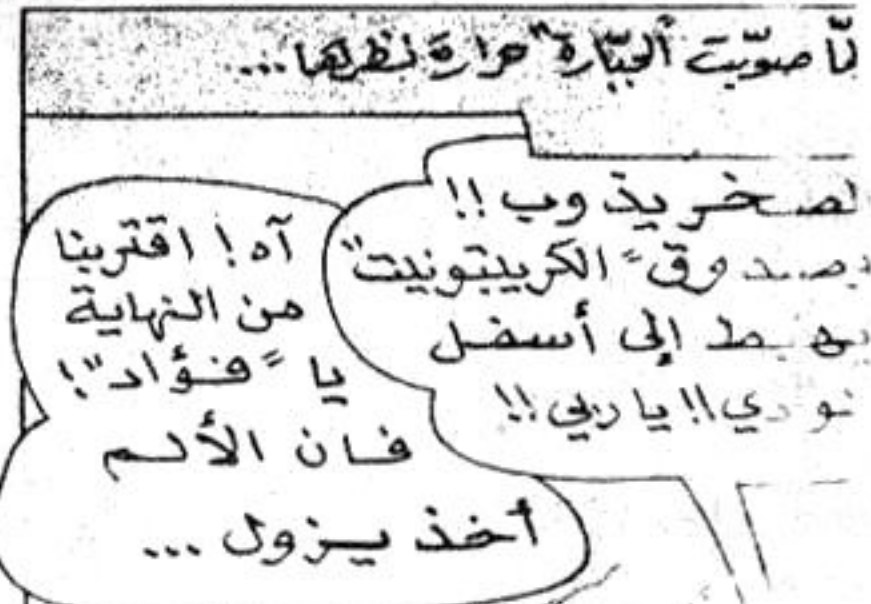 لمّا صوّبت "الجبّارة" حرارة نظرها...
الصخر يذوب !!
"الكريبتونيت"
يهبط إلى أسفل
يا ربي !!
آه! اقتربنا
من النهاية
يا "فؤاد"!
فان الألم
أخذ يزول ...